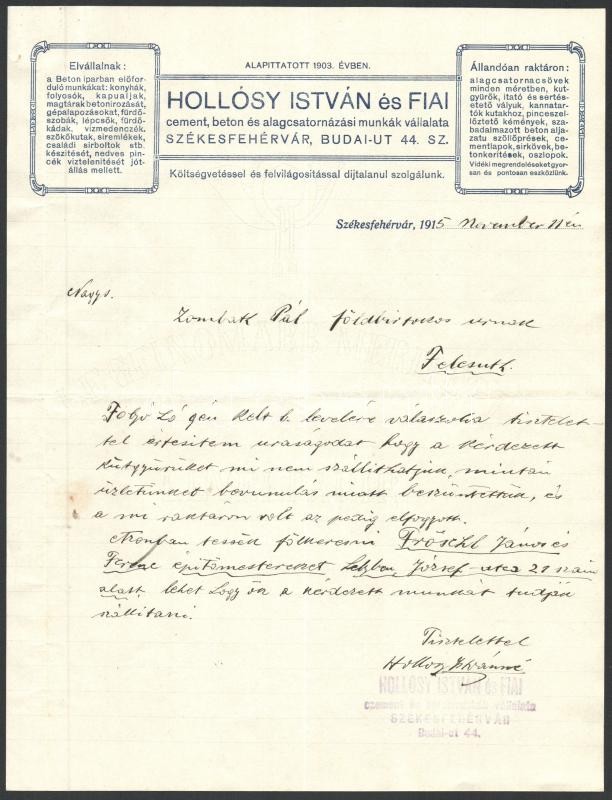 Elvállalnak :
a Beton iparban előfor-
duló munkákat: konyhák,
folyosók, kapualjak,
magtárak betonirozását,
gépalapozásokat, fürdő-
szobák, lépcsők, fürdő-
kádak, vizmedenczék,
szökőkutak, siremlékek,
családi sirboltok stb.
készitését, nedves pin-
cék viztelenitését jót-
állás mellett.
ALAPITTATOTT 1903. ÉVBEN.
HOLLÓSY ISTVÁN és FIAI
cement, beton és alagcsatornázási munkák vállalata
SZÉKESFEHÉRVÁR, BUDAI-UT 44. SZ.
Költségvetéssel és felvilágositással dijtalanul szolgálunk.
Állandóan raktáron:
alagcsatornacsövek
minden méretben, kut-
gyűrűk, itató és sertés-
etető vályuk, kannatar-
tók kutakhoz, pinceszel-
lőztető kémények, sza-
badalmazott beton aljza-
tu szöllőprések, ce-
mentlapok, sirkövek, be-
tonkeritések, oszlopok.
Vidéki megrendeléseket gyor-
san és pontosan eszközlünk.
Székesfehérvár, 1915 November 11 én
Nagys.
Zombath Pál földbirtokos urnak
Felcsuth.
Folyó hó gén kelt b. levelére válaszolva tisztelet-
tel értesitem uraságodat hogy a kérdezett
kutgyürüket mi nem szállithatjuk, miután
üzletünket bevonulás miatt beszüntettük, és
a mi raktáron volt az pedig elfogyott.
Azonban tessék fölkeresni Fröschl János és
Ferenc épitőmestereket József-utca 21 szám
alatt lehet hogy ők a kérdezett munkát tudják
szállitani.
Tisztelettel
Hollósy Istvánné
HOLLÓSY ISTVÁN és FIAI
cement és betonmunkák vállalata
SZÉKESFEHÉRVÁR
Budai-ut 44.